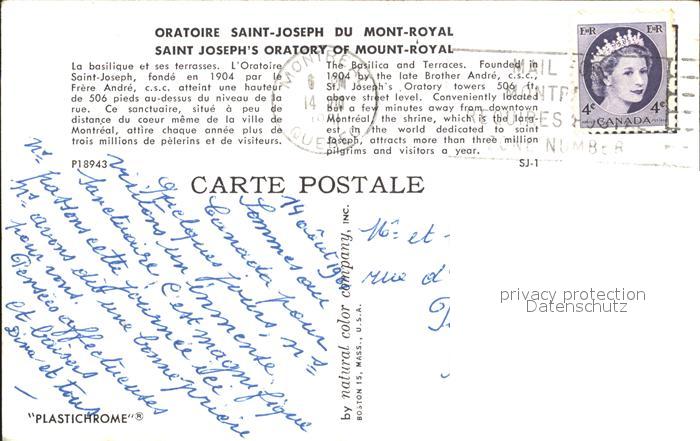 ORATOIRE SAINT-JOSEPH DU MONT-ROYAL
SAINT JOSEPH'S ORATORY OF MOUNT-ROYAL
La basilique et ses terrasses. L'Oratoire
Saint-Joseph, fondé en 1904 par le
Frère André, c.s.c., atteint une hauteur
de 506 pieds au-dessus du niveau de la
rue. Ce sanctuaire, situé à peu de
distance du coeur même de la ville de
Montréal, attire chaque année plus de
trois millions de pèlerins et de visiteurs.
The Basilica and Terraces. Founded in
1904 by the late Brother André, c.s.c.,
St. Joseph's Oratory towers 506 ft.
above street level. Conveniently located
but a few minutes away from downtown
Montréal the shrine, which is the larg-
est in the world dedicated to saint
Joseph, attracts more than three million
pilgrims and visitors a year.
P18943
SJ-1
CARTE POSTALE
MONTREAL
14
QUEBEC
MAIL
NUMBER
E R
E R
4c
4c
CANADA
14 août 19
Sommes au
Canada pour
quelques jours ns
visitons un immense
sanctuaire c'est magnifique
ns passons cette journée ici
ns avons dit une bonne prière
pour vous.
Pensées affectueuses
et baisers
Dina et tous
by natural color company, INC.
BOSTON 15, MASS., U.S.A.
Mr et
rue d
"PLASTICHROME"®
privacy protection
Datenschutz